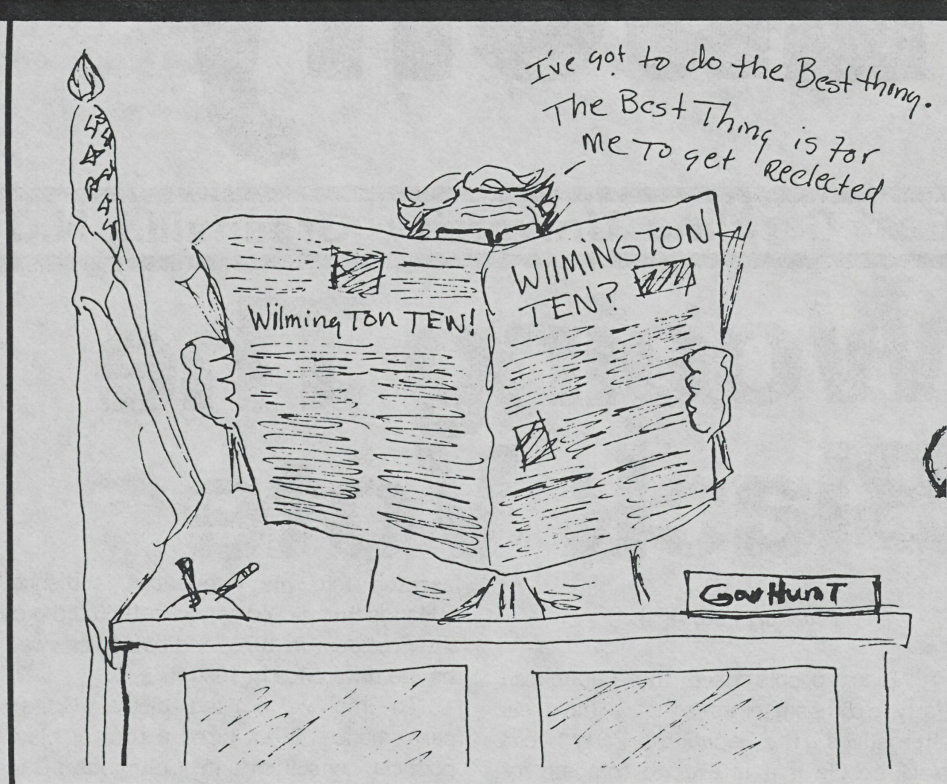 I've got to do the Best thing.
The Best Thing is For
me To get Reelected
WIlMINGTON
TEN?
WilmingTon TEN!
GovHunT